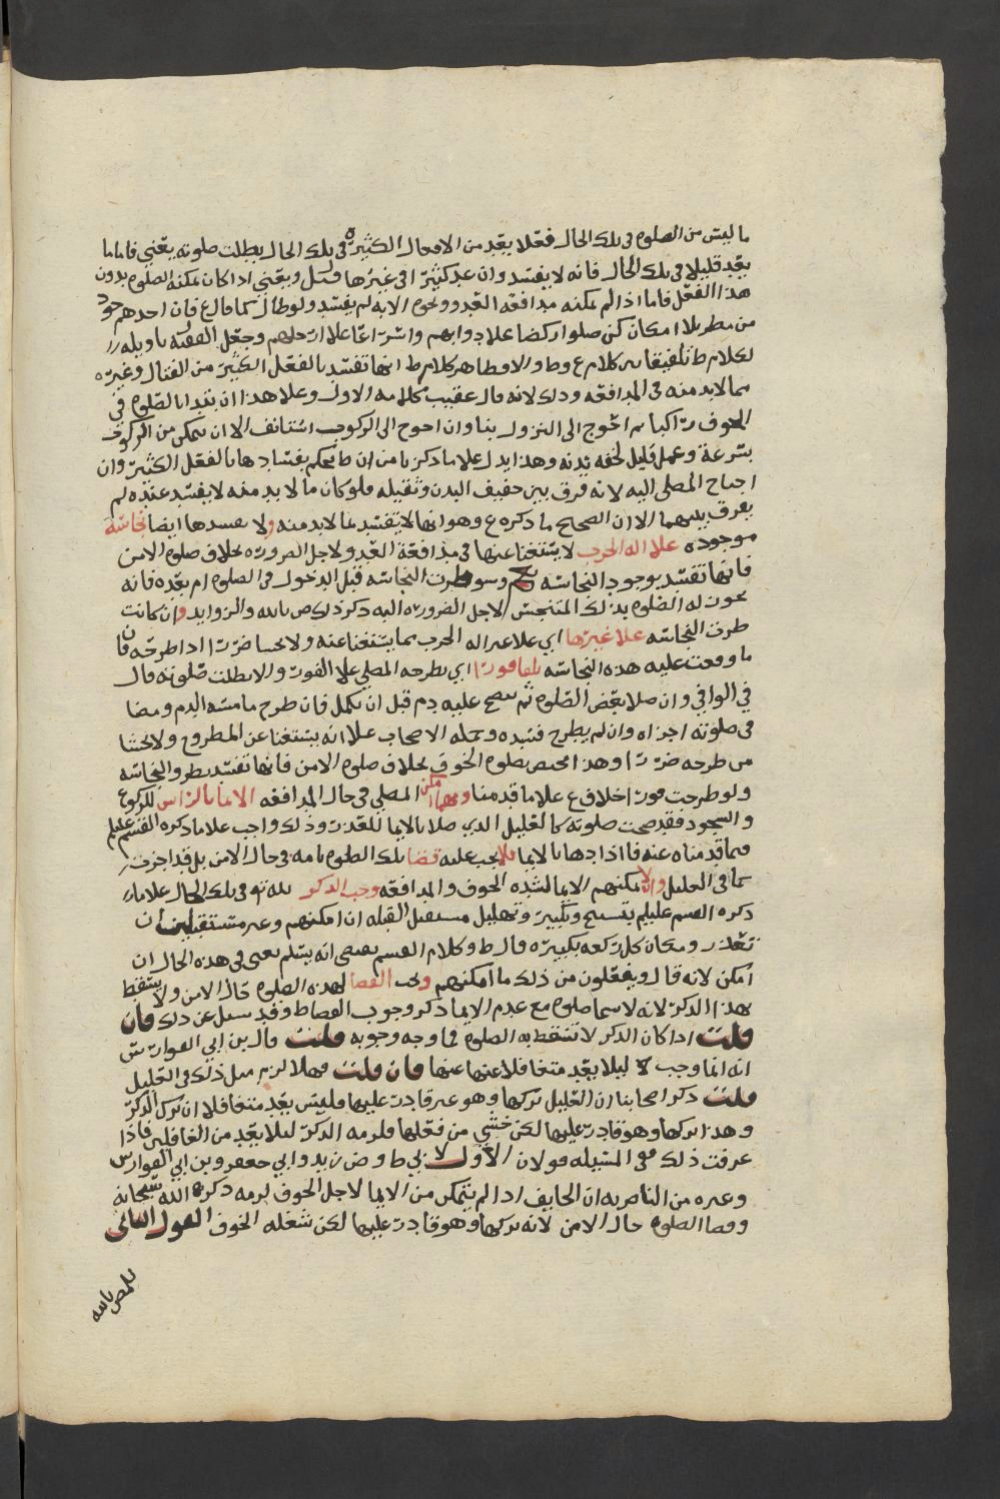 ما ليس من الصلوه فى تلك الحال فعلا يعد من الافعال الكثيرة فى تلك الحال بطلت صلوته يعني فاما ما
يعد قليلا فى تلك الحال فانه لا يفسد وان عد كثيرا فى غيرها ويعني اذا كان يمكنه الصلوه بدون
هذا الفعل فاما اذا لم يمكنه مدافعه العدو ونحوه الا به لم يفسد ولو طال كما قال ع فان احدهم
من مطر بلا امكان كن صلوا ركضا علا دوابهم واشراعا علا ارجلهم وجعل الفقيه تاويله
لكلام ط تلفيقا بين كلام ع وط والا فظاهر كلام ط انها تفسد بالفعل الكثير من القتال وغيره
مما لا بد منه فى المدافعه وذلك لانه قال عقيب كلامه الاول وعلا هذا ان ابتدا الصلوه في
الخوف راكبا ثم احوج الى النزول بنا وان احوج الى الركوب استانف الا ان يتمكن من الركوب
بسرعة وعمل قليل لخفه بدنه وهذا يدل علا ما ذكرنا من ان ط يحكم بفسادها بالفعل الكثير وان
احتاج المصلي اليه لانه فرق بين خفيف البدن وثقيله فلو كان ما لا بد منه لا يفسد عنده لم
يفرق بينهما الا ان الصحيح ما ذكره ع وهو انها لا تفسد بما لا بد منه ولا يفسدها ايضا نجاسة
موجوده علا اله الحرب لا يستغنا عنها فى مدافعة العدو لاجل الضروره بخلاف صلوه الامن
فانها تفسد بوجود النجاسه وسوا طرت النجاسه قبل الدخول فى الصلوه ام بعده فانه
يجوز له الصلوه بذلك المتنجس لاجل الضروره اليه ذكر ذلك ص بالله والزوايد وان كانت
طرت النجاسه علا غيرها اي علا غير اله الحرب مما يستغنا عنه ولا يخشا ضررا اذا طرحه فان
ما وقعت عليه هذه النجاسه يلقا فورا اي يطرحه المصلي علا الفور والا بطلت صلوته قال
في الوافي وان صلا بعض الصلوه ثم نضح عليه دم قبل ان تكمل فان طرح ما مسه الدم ومضا
فى صلوته اجزاه وان لم يطرح فسدة وحمله الاصحاب علا انه يستغنا عن المطروح ولا يخشا
من طرحه ضررا وهذا مختص بصلوه الخوف بخلاف صلوه الامن فانها تفسد بطرو النجاسه
ولو طرحت فورا خلاف ع علا ما قدمنا ومهما امكن المصلي فى حال المدافعه الايما بالراس للركوع
والسجود فقد صحت صلوته كالعليل الذي صلا بالايما للعذر وذلك واجب علا ما ذكره القسم عليلم
فيما قدمناه عنه فاذا ادها بالايما فلا يجب عليه قضا تلك الصلوه تامه فى حال الامن بل قد اجزت
كما فى العليل والا يمكنهم الايما لشده الخوف والمدافعه وجب الذكر لله تع فى تلك الحال علا ما
ذكره القسم عليلم بتسبيح وتكبير وتهليل مستقبل القبله ان امكنهم وغير مستقبلين ان
تعذر ومكان كل ركعه تكبيره قال ط وكلام القسم يقتضي انه يسلم يعنى فى هذه الحال ان
امكن لانه قال ويفعلون من ذلك ما امكنهم ويجب القضا لهذه الصلوه حال الامن ولا يسقط
بهذا الذكر لانه لا يسما صلوه مع عدم الايما ذكر وجوب القضا ط وقد سيل عن ذلك فان
قلت اذا كان الذكر لا تسقط به الصلوه فما وجه وجوبه قلت قال بن ابي الفوارس
انه انما وجب ليلا يعد متغافلا عنها فان قلت فهلا لزم مثل ذلك فى العليل
قلت ذكر اصحابنا ان العليل تركها وهو غير قادر عليها فليس يعد متغافلا ان ترك الذكر
وهذا تركها وهو قادر عليها لكن خشي من فعلها فلزمه الذكر ليلا يعد من الغافلين فاذا
عرفت ذلك ففى المسيله قولان الاول لابي ط وض زيد وابي جعفر وبن ابي الفوارس
وغيره من الناصريه ان الخايف اذا لم يتمكن من الايما لاجل الخوف لزمه ذكر الله سبحانه
وقضا الصلوه حال الامن لانه تركها وهو قادر عليها لكن شغله الخوف القول الثانى
للمنص بالله